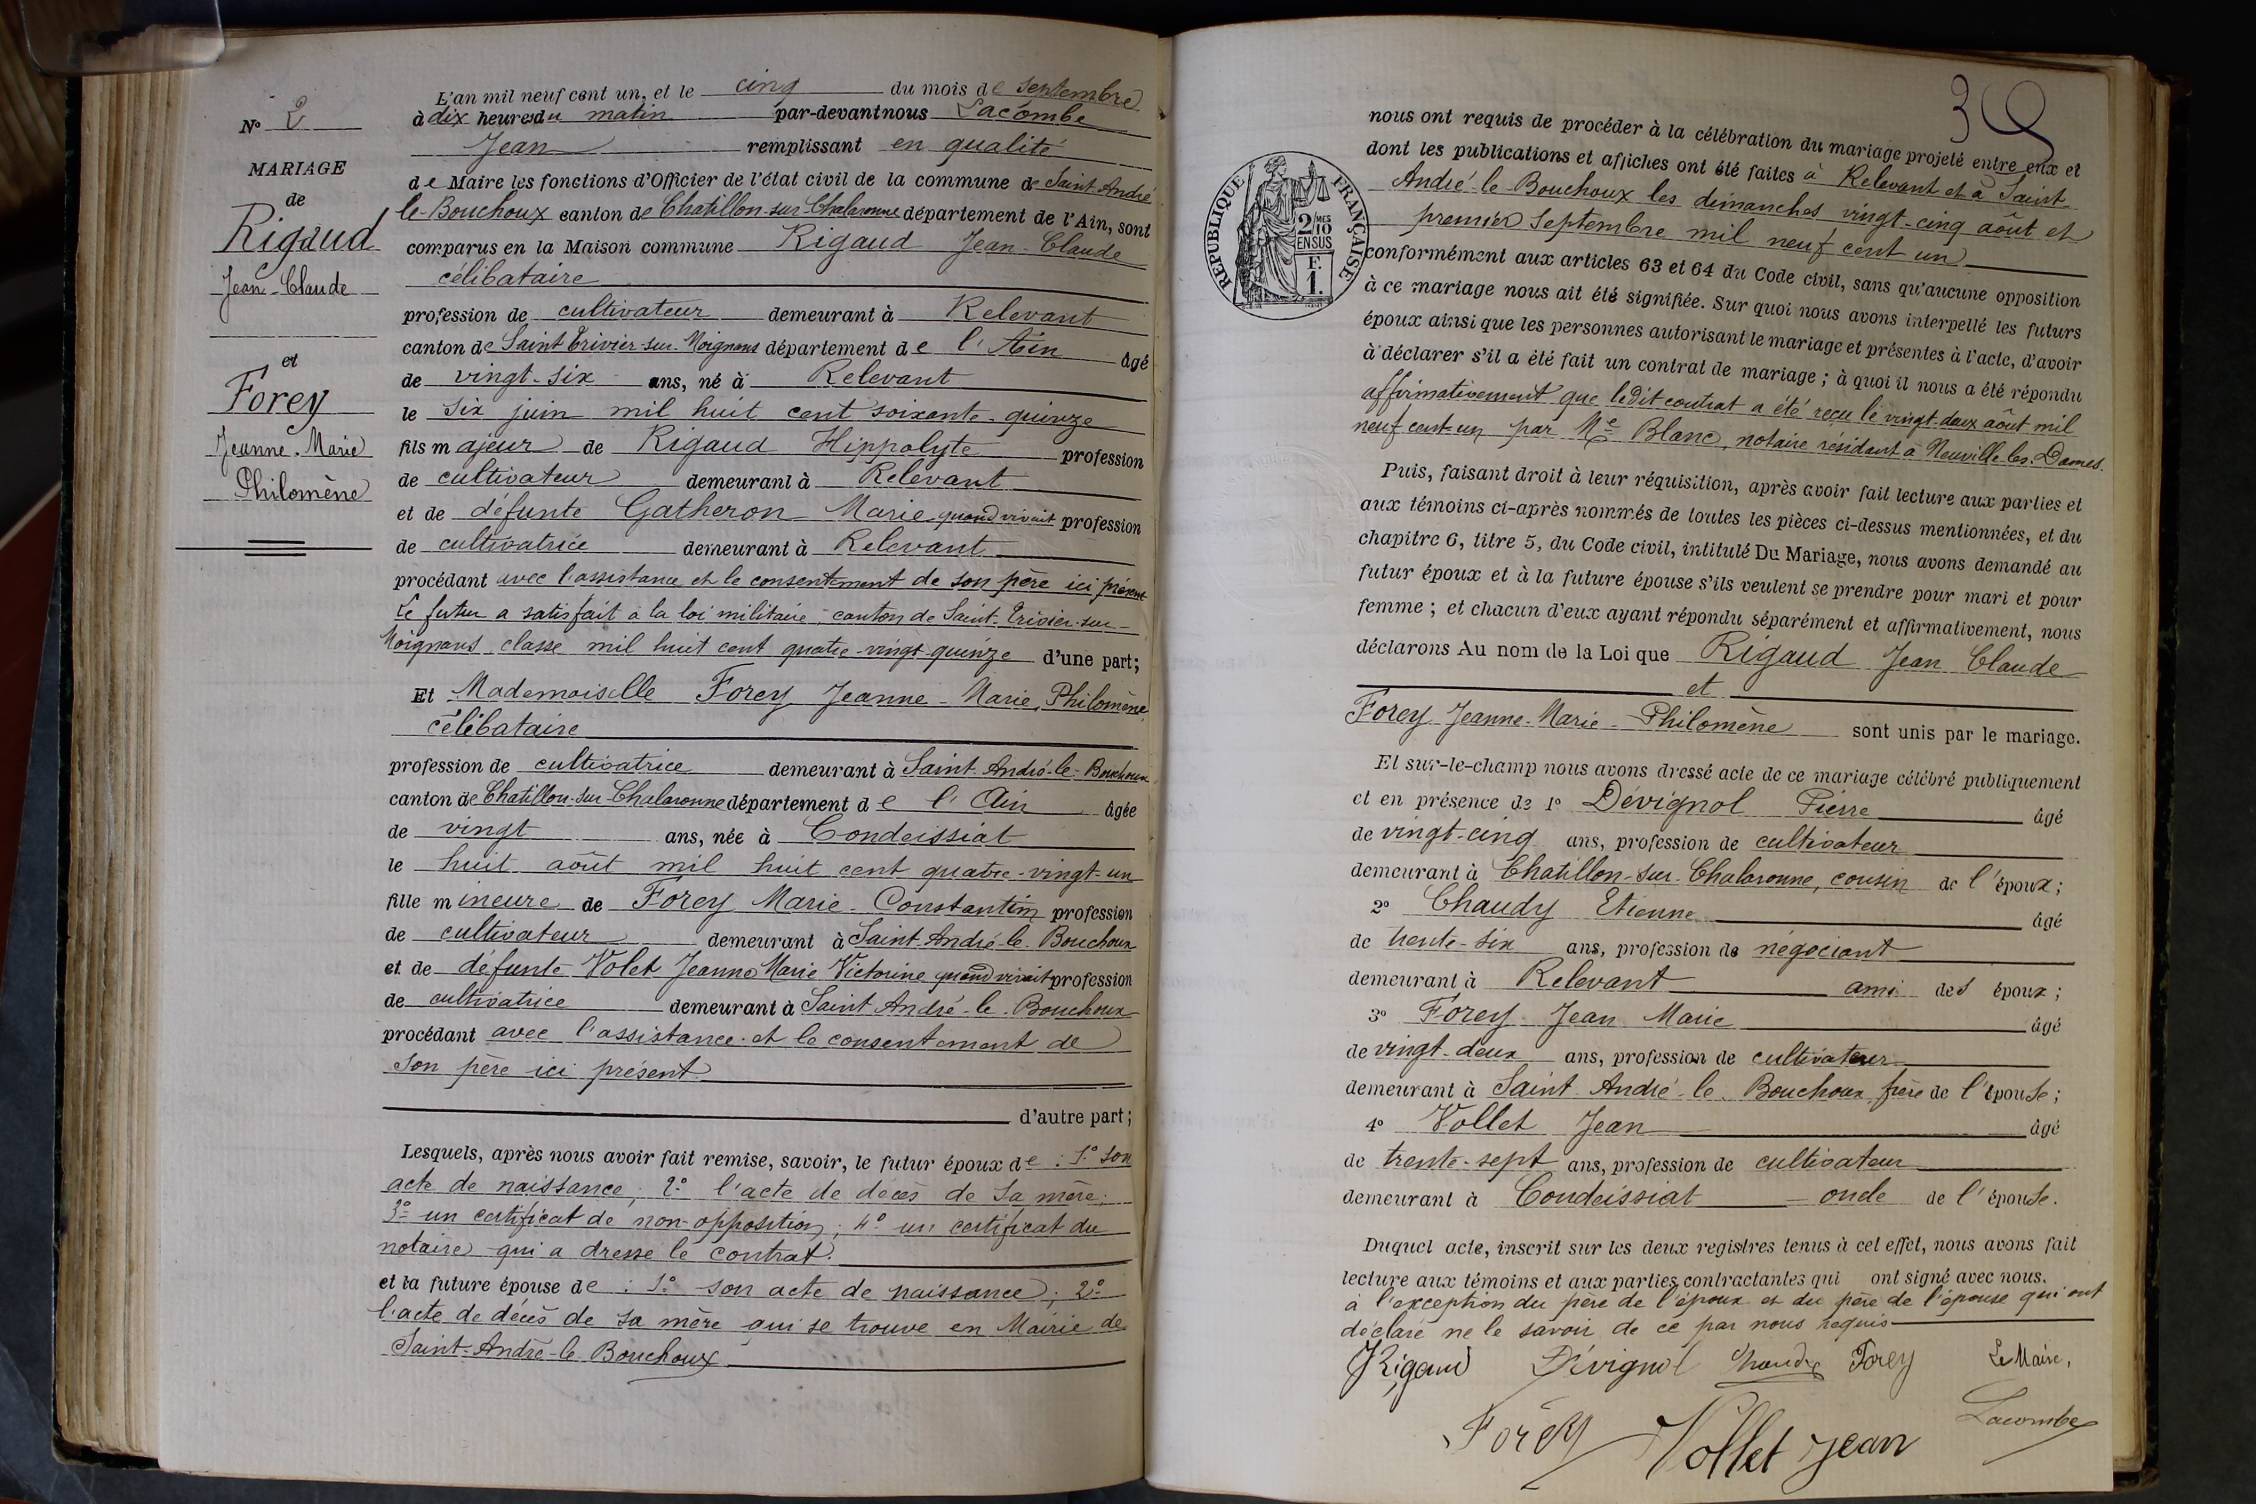 N° 2
MARIAGE
de
Rigaud
Jean-Claude
et
Forey
Jeanne-Marie
Philomène
L'an mil neuf cent un, et le cinq du mois de Septembre
à dix heures du matin par-devant nous Lacombe
Jean remplissant en qualité
de Maire les fonctions d'Officier de l'état civil de la commune de Saint-André
le-Bouchoux canton de Chatillon-sur-Chalaronne département de l'Ain, sont
comparus en la Maison commune Rigaud Jean-Claude
célibataire
profession de cultivateur demeurant à Relevant
canton de Saint Trivier-sur-Moignans département de l'Ain âgé
de vingt-six ans, né à Relevant
le six juin mil huit cent soixante-quinze
fils majeur de Rigaud Hippolyte profession
de cultivateur demeurant à Relevant
et de défunte Gatheron Marie quand vivait profession
de cultivatrice demeurant à Relevant
procédant avec l'assistance et le consentement de son père ici présent
Le futur a satisfait à la loi militaire, canton de Saint-Trivier-sur-
Moignans classe mil huit cent quatre-vingt-quinze d'une part;
Et Mademoiselle Forey Jeanne-Marie, Philomène
célibataire
profession de cultivatrice demeurant à Saint-André-le-Bouchoux
canton de Chatillon-sur-Chalaronne département de l'Ain âgée
de vingt ans, née à Condeissiat
le huit août mil huit cent quatre-vingt-un
fille mineure de Forey Marie-Constantin profession
de cultivateur demeurant à Saint-André-le-Bouchoux
et de défunte Volet Jeanne Marie Victorine quand vivait profession
de cultivatrice demeurant à Saint André-le-Bouchoux
procédant avec l'assistance et le consentement de
son père ici présent
d'autre part;
Lesquels, après nous avoir fait remise, savoir, le futur époux de : 1° son
acte de naissance; 2° l'acte de décès de sa mère;
3° un certificat de non-opposition; 4° un certificat du
notaire qui a dressé le contrat.
et la future épouse de : 1° son acte de naissance; 2°
l'acte de décès de sa mère qui se trouve en Mairie de
Saint-André-le-Bouchoux
39
RÉPUBLIQUE FRANÇAISE
2 MES
10
EN SUS
F.
1.
nous ont requis de procéder à la célébration du mariage projeté entre eux et
dont les publications et affiches ont été faites à Relevant et à Saint
André-le-Bouchoux les dimanches vingt-cinq août et
premier Septembre mil neuf cent un
conformément aux articles 63 et 64 du Code civil, sans qu'aucune opposition
à ce mariage nous ait été signifiée. Sur quoi nous avons interpellé les futurs
époux ainsi que les personnes autorisant le mariage et présentes à l'acte, d'avoir
à déclarer s'il a été fait un contrat de mariage; à quoi il nous a été répondu
affirmativement que ledit contrat a été reçu le vingt-deux août mil
neuf cent-un par Me Blanc, notaire résidant à Neuville-les-Dames.
Puis, faisant droit à leur réquisition, après avoir fait lecture aux parties et
aux témoins ci-après nommés de toutes les pièces ci-dessus mentionnées, et du
chapitre 6, titre 5, du Code civil, intitulé Du Mariage, nous avons demandé au
futur époux et à la future épouse s'ils veulent se prendre pour mari et pour
femme; et chacun d'eux ayant répondu séparément et affirmativement, nous
déclarons Au nom de la Loi que Rigaud Jean Claude
et
Forey Jeanne-Marie-Philomène sont unis par le mariage.
Et sur-le-champ nous avons dressé acte de ce mariage célébré publiquement
et en présence de 1° Dévignol Pierre âgé
de vingt-cinq ans, profession de cultivateur
demeurant à Chatillon-sur-Chalaronne, cousin de l'époux;
2° Chaudy Etienne âgé
de trente-six ans, profession de négociant
demeurant à Relevant ami des époux;
3° Forey Jean Marie âgé
de vingt-deux ans, profession de cultivateur
demeurant à Saint André-le-Bouchoux, frère de l'épouse;
4° Vollet Jean âgé
de trente-sept ans, profession de cultivateur
demeurant à Condeissiat oncle de l'épouse.
Duquel acte, inscrit sur les deux registres tenus à cet effet, nous avons fait
lecture aux témoins et aux parties contractantes qui ont signé avec nous.
à l'exception du père de l'époux et du père de l'épouse qui ont
déclaré ne le savoir de ce par nous requis
JRigaud Dévignol Chaudy Forey Le Maire,
Forey Vollet Jean Lacombe